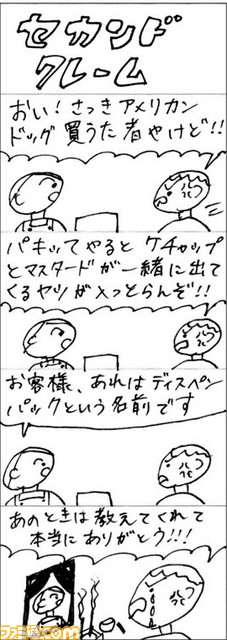 セカンド
クレーム
おい!さっきアメリカン
ドッグ買うた者やけど!!
パキッてやると ケチャップ
とマスタードが一緒に出て
くるヤツが入っとらんぞ!!
お客様、あれはディスペン
パックという名前です
あのときは教えてくれて
本当にありがとう!!!
ファミ通.com